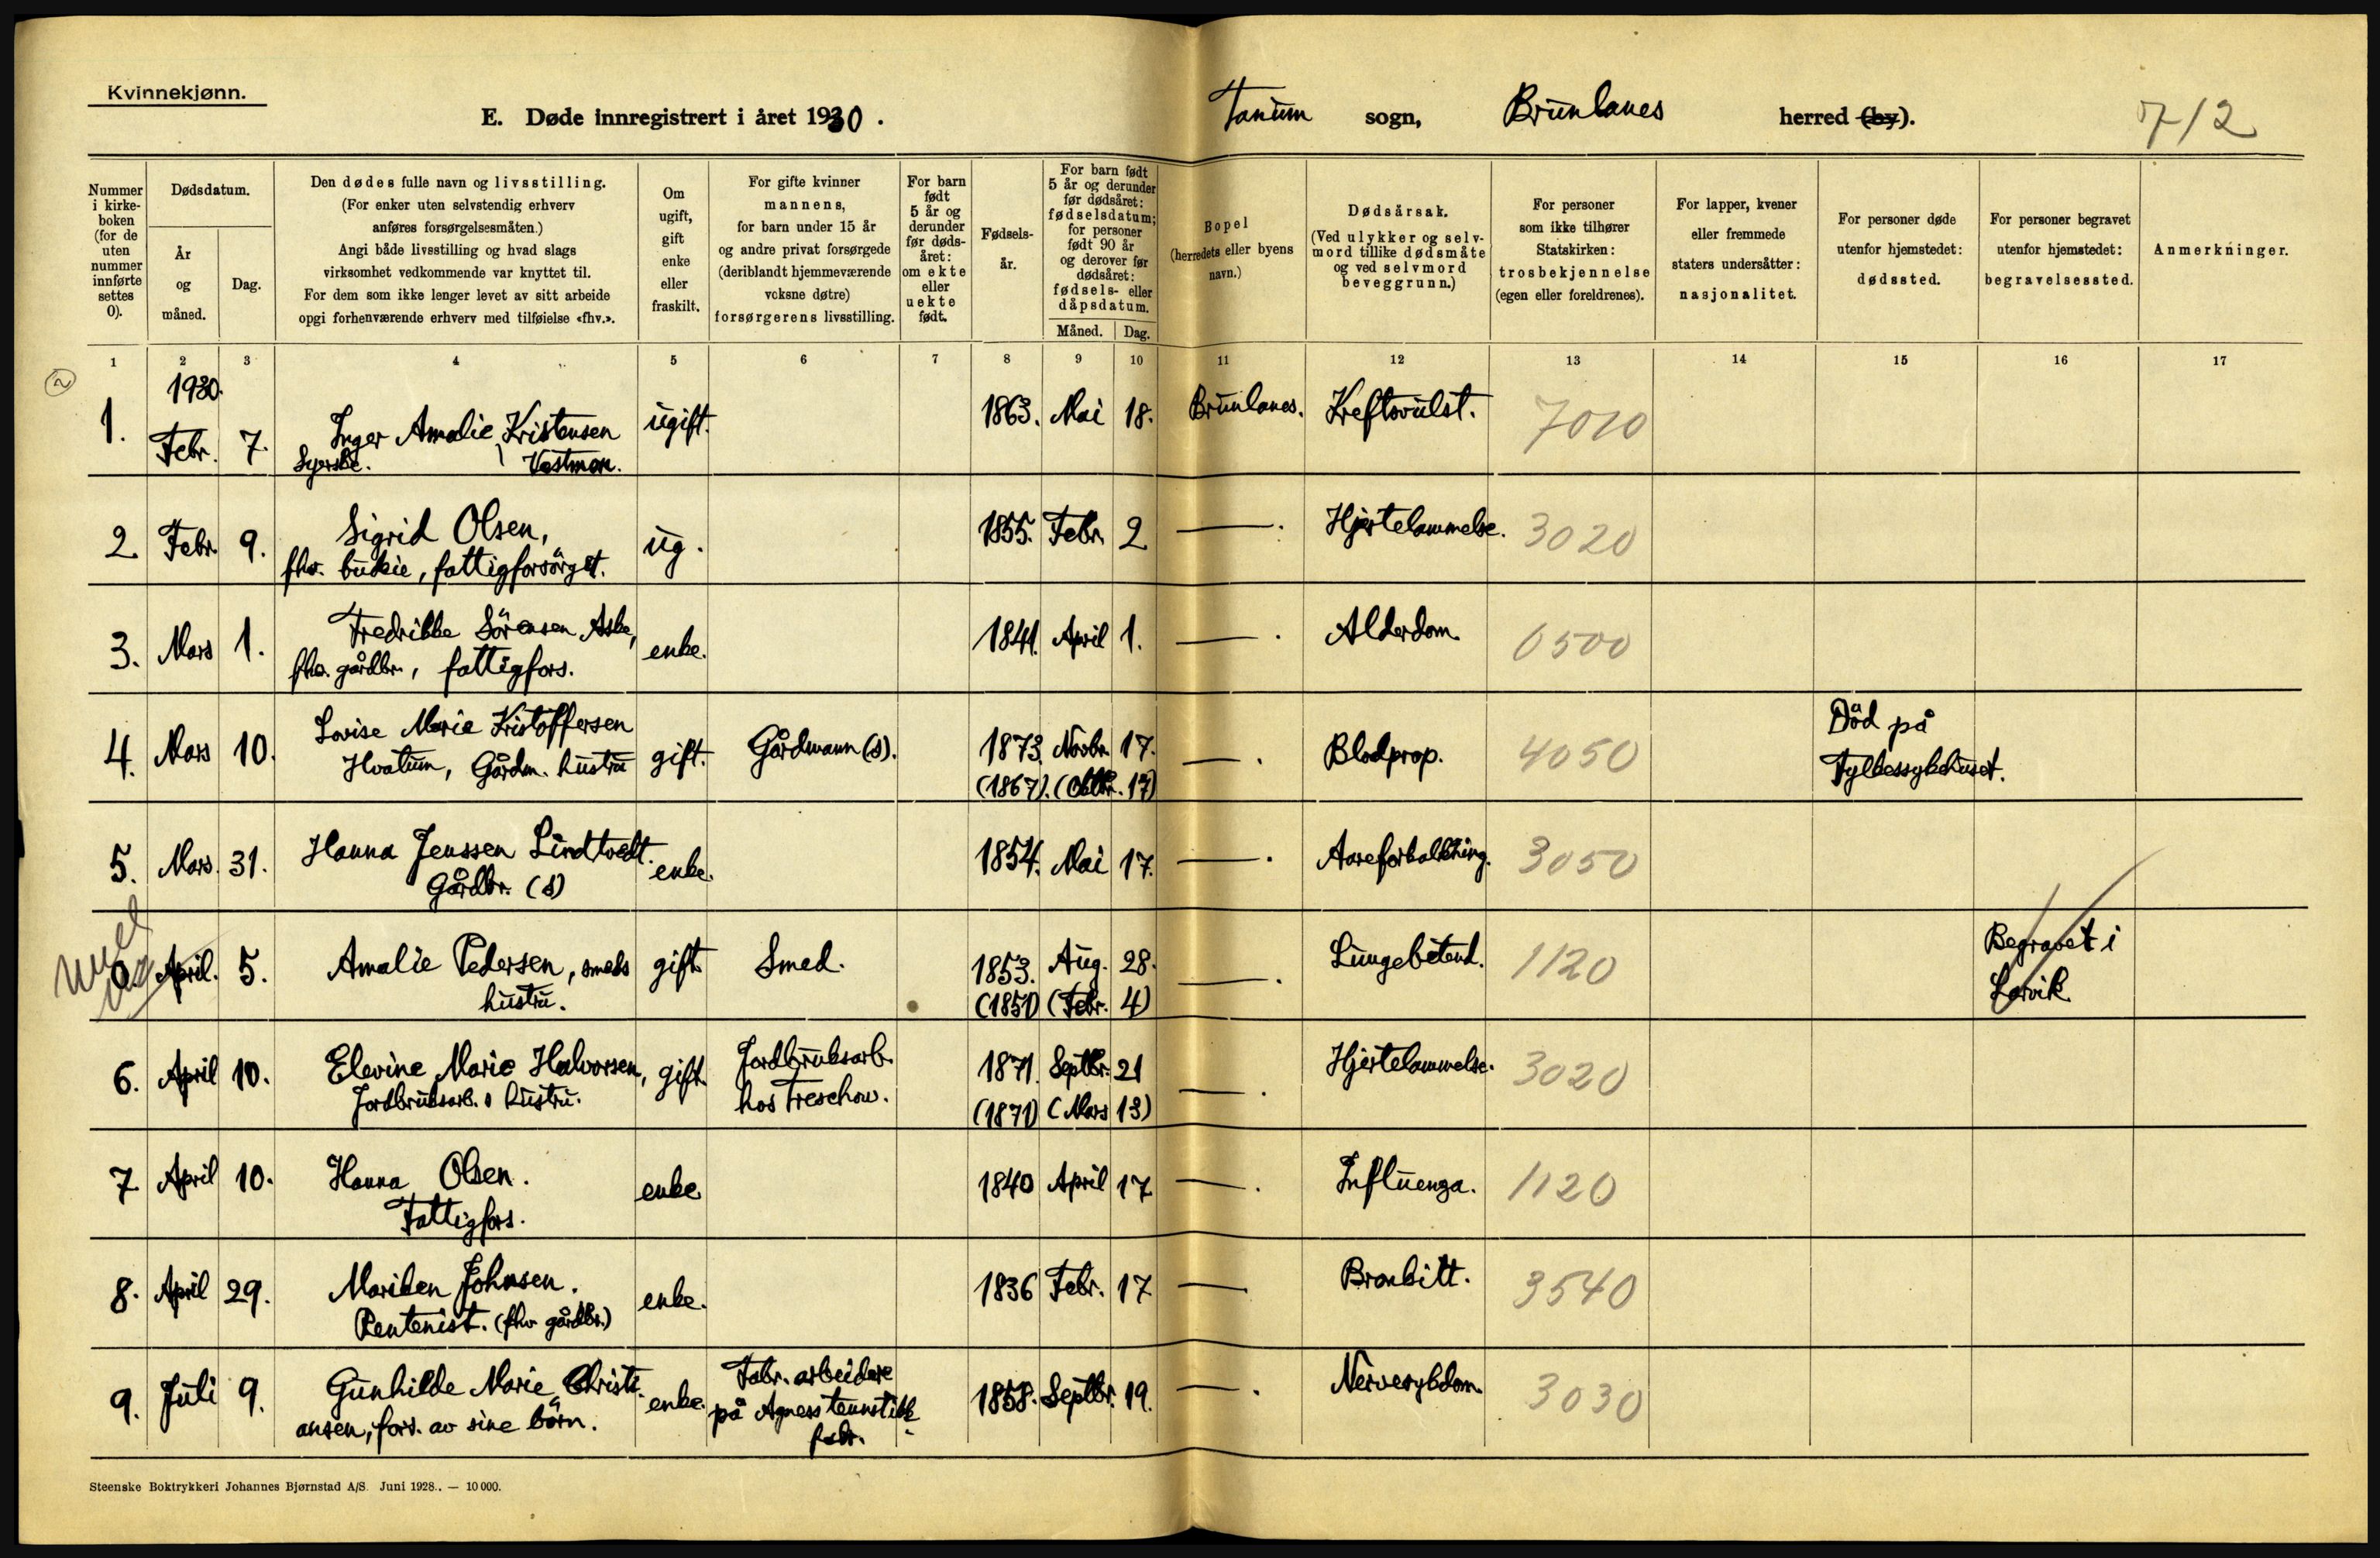 Kvinnekjønn.
E. Døde innregistrert i året 1930.
Tanum sogn, Brunlanes herred (by).
712
Nummer i kirke-boken (for de uten nummer innførte settes 0).
Dødsdatum.
År og måned.
Dag.
Den dødes fulle navn og livsstilling.
(For enker uten selvstendig erhverv
anføres forsørgelsesmåten.)
Angi både livsstilling og hvad slags
virksomhet vedkommende var knyttet til.
For dem som ikke lenger levet av sitt arbeide
opgi forhenværende erhverv med tilføielse «fhv.».
Om ugift, gift enke eller fraskilt.
For gifte kvinner
mannens,
for barn under 15 år
og andre privat forsørgede
(deriblandt hjemmeværende
voksne døtre)
forsørgerens livsstilling.
For barn født 5 år og derunder før døds-året: om ekte eller uekte født.
Fødsels-år.
For barn født
5 år og derunder
før dødsåret:
fødselsdatum;
for personer
født 90 år
og derover før
dødsåret:
fødsels- eller
dåpsdatum.
Måned. Dag.
Bopel
(herredets eller byens
navn.)
Dødsårsak.
(Ved ulykker og selv-
mord tillike dødsmåte
og ved selvmord
beveggrunn.)
For personer
som ikke tilhører
Statskirken:
trosbekjennelse
(egen eller foreldrenes).
For lapper, kvener
eller fremmede
staters undersåtter:
nasjonalitet.
For personer døde
utenfor hjemstedet:
dødssted.
For personer begravet
utenfor hjemstedet:
begravelsessted.
Anmerkninger.
1 2 3 4 5 6 7 8 9 10 11 12 13 14 15 16 17
2
1930.
1. Febr. 7. Inger Amalie Kristensen ugift. 1863. Mai 18. Brunlanes. Kreftsvulst. 7010
Syerske. Vestmon.
2. Febr. 9. Sigrid Olsen, ug. 1855. Febr. 2 —. Hjertelammelse. 3020
fhv. budeie, fattigforsörget.
3. Mars 1. Fredrikke Sörensen Aske, enke. 1841. April 1. —. Alderdom. 6500
fhv. gårdbr., fattigfors.
4. Mars 10. Lovise Marie Kristoffersen gift. Gårdmann (s). 1873. Novbr. 17. —. Blodprop. 4050 Död på
Hvatum, Gårdm. hustru (1867). (Oktbr. 17) Fylkessykehuset.
5. Mars. 31. Hanna Jenssen Lindtvedt. enke. 1854. Mai 17. —. Aareforkalkning. 3050
Gårdbr. (s)
0. April. 5. Amalie Pedersen, smeds gift Smed. 1853. Aug. 28. —. Lungebetend. 1120 Begravet i
hustru. (1851) (Febr. 4) Larvik.
6. April 10. Elevine Marie Halvorsen, gift. Jordbruksarb. 1871. Septbr. 21 —. Hjertelammelse. 3020
Jordbruksarb. s hustru. hos Treschow. (1871) (Mars 13)
7 April 10. Hanna Olsen. enke 1840 April 17 —. Influenza. 1120
Fattigfors.
8. April 29. Mariken Johnsen. enke. 1836 Febr. 17 — Bronkitt. 3540
Rentenist. (fhv gårdbr.)
9. Juli 9. Gunhilde Marie Christi- enke. Fabr. arbeidere 1858. Septbr. 19. —. Nervesykdom. 3030
ansen, fors. av sine börn. på Agness tennstikk-
fabr.
Steenske Boktrykkeri Johannes Bjørnstad A/S. Juni 1928.. — 10 000.